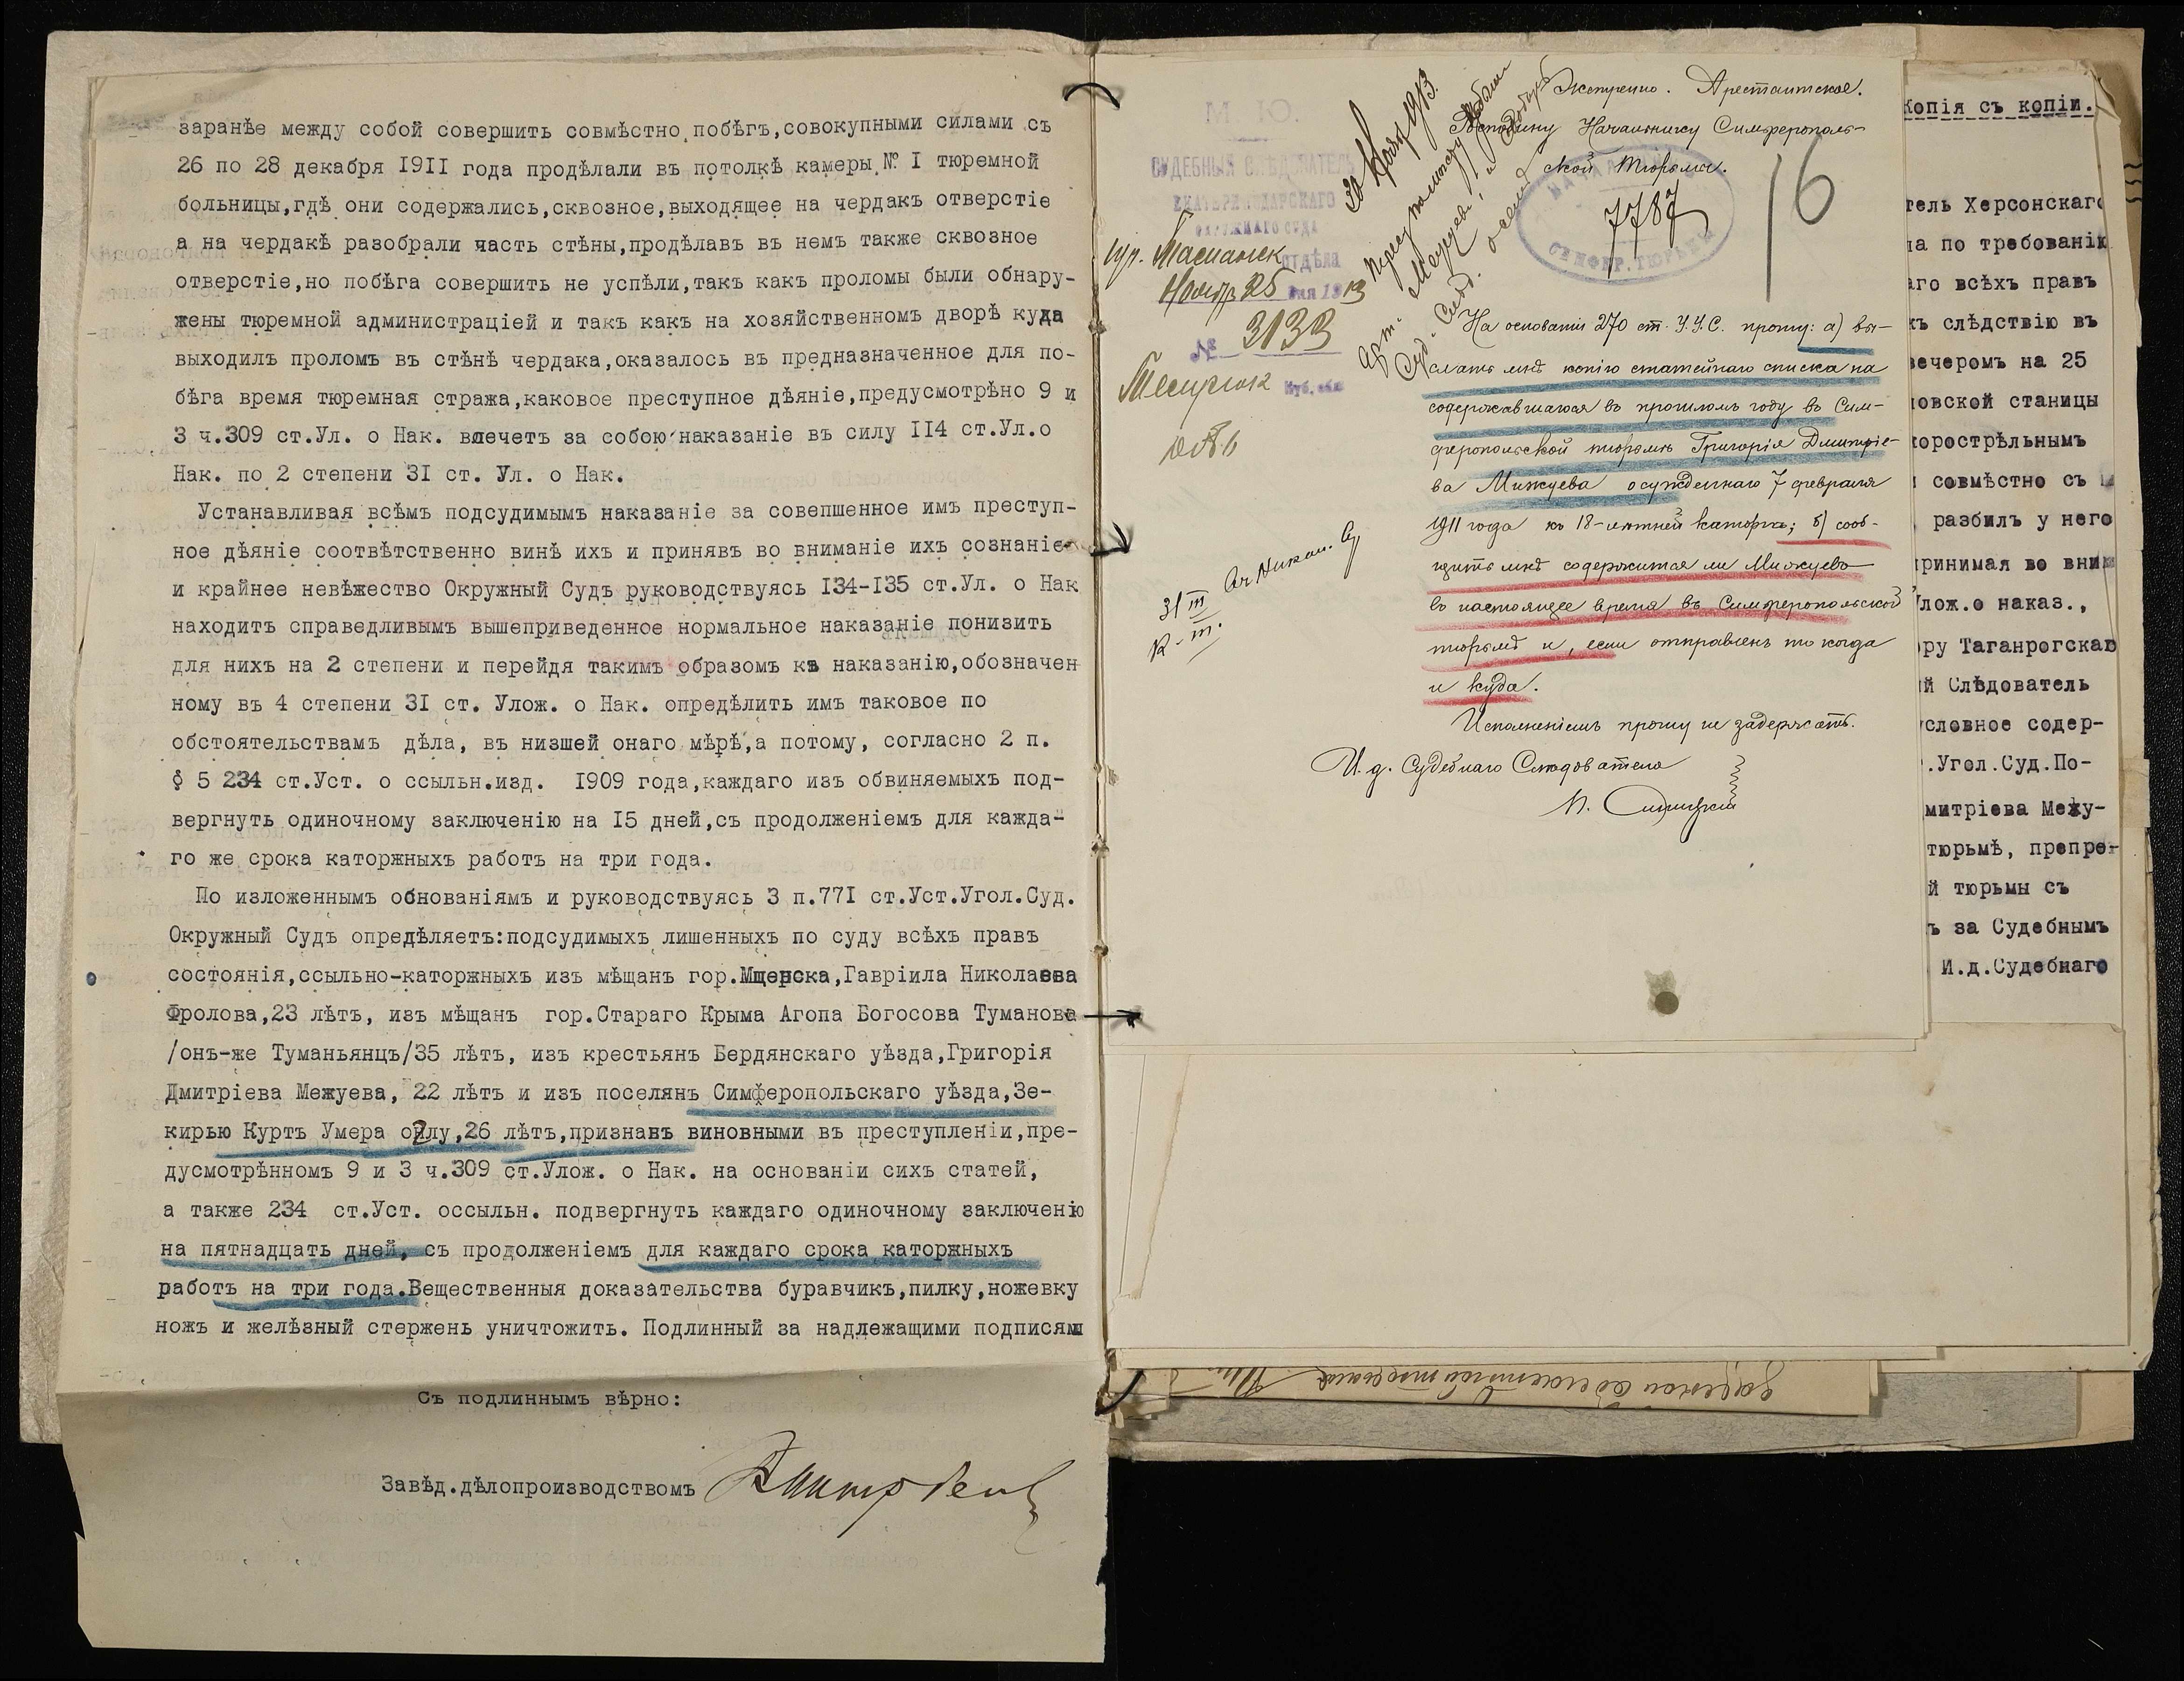 заранѣе между собой совершить совмѣстно побѣгъ,совокупными силами съ
26 по 28 декабря 1911 года продѣлали въ потолкѣ камеры № I тюремной
больницы,гдѣ они содержались,сквозное,выходящее на чердакъ отверстіе
а на чердакѣ разобрали часть стѣны,продѣлавъ въ немъ также сквозное
отверстіе,но побѣга совершить не успѣли,такъ какъ проломы были обнару-
жены тюремной администраціей и такъ какъ на хозяйственномъ дворѣ куда
выходилъ проломъ въ стѣнѣ чердака,оказалось въ предназначенное для по-
бѣга время тюремная стража,каковое преступное дѣяніе,предусмотрѣно 9 и
3 ч.309 ст.Ул. о Нак. влечетъ за собою наказаніе въ силу II4 ст.Ул.о
Нак. по 2 степени 3I ст. Ул. о Нак.
Устанавливая всѣмъ подсудимымъ наказаніе за совепшенное имъ преступ-
ное дѣяніе соотвѣтственно винѣ ихъ и принявъ во вниманіе ихъ сознаніе
и крайнее невѣжество Окружный Судъ руководствуясь I34-I35 ст.Ул. о Нак
находитъ справедливымъ вышеприведенное нормальное наказаніе понизить
для нихъ на 2 степени и перейдя такимъ образомъ къ наказанію,обозначен
ному въ 4 степени 3I ст. Улож. о Нак. опредѣлить имъ таковое по
обстоятельствамъ дѣла, въ низшей онаго мѣрѣ,а потому, согласно 2 п.
§ 5 234 ст.Уст. о ссыльн.изд. 1909 года,каждаго изъ обвиняемыхъ под-
вергнуть одиночному заключенію на I5 дней,съ продолженіемъ для кажда-
го же срока каторжныхъ работъ на три года.
По изложеннымъ обнованіямъ и руководствуясь 3 п.77I ст.Уст.Угол.Суд.
Окружный Судъ опредѣляетъ:подсудимыхъ лишенныхъ по суду всѣхъ правъ
состоянія,ссыльно-каторжныхъ изъ мѣщанъ гор.Мценска,Гавріила Николаева
Фролова,23 лѣтъ, изъ мѣщанъ гор.Стараго Крыма Агопа Богосова Туманова
/онъ-же Туманьянцъ/35 лѣтъ, изъ крестьянъ Бердянскаго уѣзда,Григорія
Дмитріева Межуева, 22 лѣтъ и изъ поселянъ Симферопольскаго уѣзда,Зе-
кирью Куртъ Умера оглу,26 лѣтъ,признавъ виновными въ преступленіи,пре-
дусмотрѣнномъ 9 и 3 ч.309 ст.Улож. о Нак. на основаніи сихъ статей,
а также 234 ст.Уст. оссыльн. подвергнуть каждаго одиночному заключенію
на пятнадцать дней, съ продолженіемъ для каждаго срока каторжныхъ
работъ на три года.Вещественныя доказательства буравчикъ,пилку,ножевку
ножъ и желѣзный стержень уничтожить. Подлинный за надлежащими подписями
Съ подлиннымъ вѣрно:
Завѣд.дѣлопроизводствомъ
М. Ю.
СУДЕБНЫЙ СЛѢДОВАТЕЛЬ
ЕКАТЕРИНОДАРСКАГО
ОКРУЖНАГО СУДА
отдѣла
Ноября 25 дня 1913
№ 3133
Темрюк Куб. обл.
30 Ноября 1913
Экстренно. Арестантское.
Господину Начальнику Симферополь-
ской Тюрьмы.
7787
СИМФЕР. ТЮРЬМЫ
16
На основаніи 270 ст. У.У.С. прошу: а) вы-
слать мнѣ копію статейнаго списка на
содержавшагося въ прошломъ году въ Сим-
феропольской тюрьмѣ Григорія Дмитріе-
ва Мижуева осужденнаго 7 февраля
1911 года къ 18-лѣтней каторгѣ; б) сооб-
щить мнѣ содержится ли Мижуевъ
въ настоящее время въ Симферопольской
тюрьмѣ и, если отправленъ то когда
и куда.
Исполненіемъ прошу не задержать.
И. д. Судебнаго Слѣдователя
31 III
Копія съ копіи.
тель Херсонскаго
на по требованію
аго всѣхъ правъ
къ слѣдствію въ
вечеромъ на 25
новской станицы
корострѣльнымъ
совмѣстно съ
разбилъ у него
принимая во вним
Улож.о наказ.,
ору Таганрогскаго
й Слѣдователь
словное содер-
.Угол.Суд.По-
митріева Межу-
тюрьмѣ, препре-
й тюрьмы съ
ъ за Судебнымъ
И.д.Судебнаго